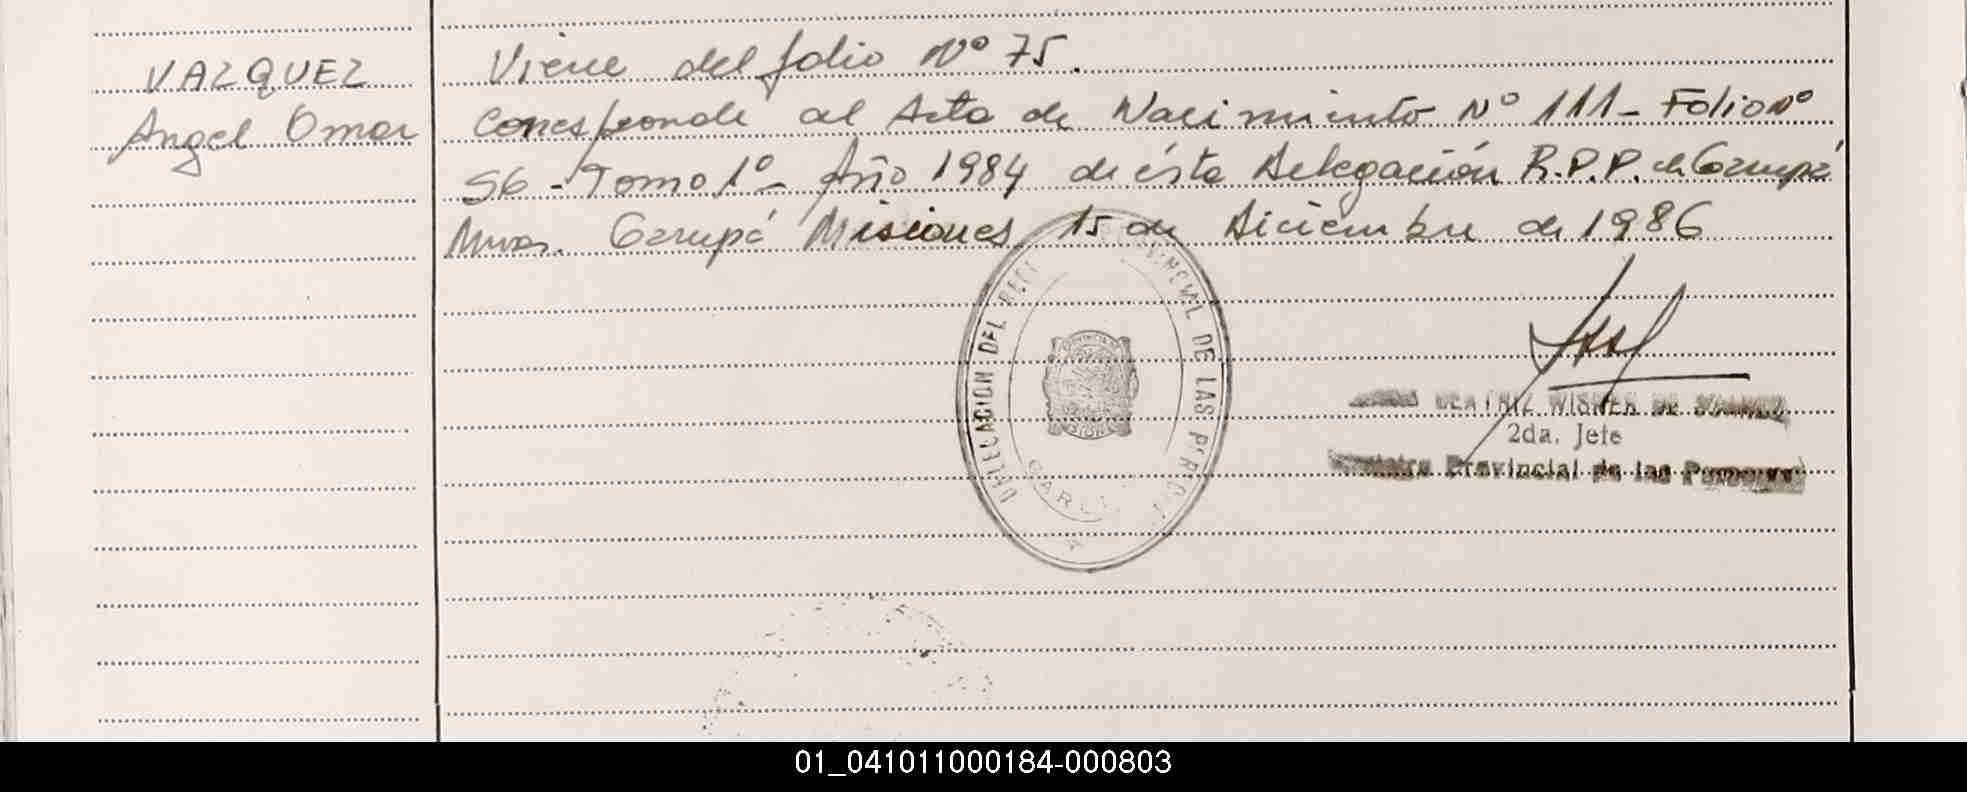 VAZQUEZ
Angel Omar
Viene del folio Nº 75.
Corresponde al Acta de Nacimiento Nº 111 - Folio nº
56 - Tomo 1º - Año 1984 de ésta Delegación R.P.P. de Garupá
Mnes. Garupá Misiones, 15 de Diciembre de 1986
DELEGACION DEL REGI PROVINCIAL DE LAS PERSON
GARU
BEATRIZ WISNER DE
2da. Jefe
Provincial de las Personas
01_041011000184-000803